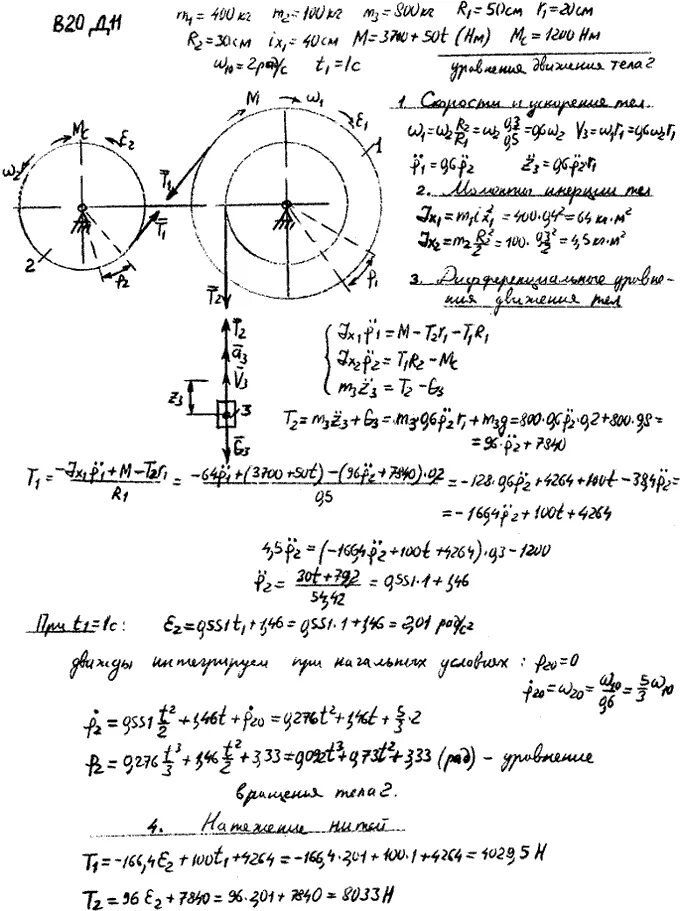 В20 Д11
m₁ = 400 кг  m₂ = 100 кг  m₃ = 800 кг  R₁ = 50 см  r₁ = 20 см
R₂ = 30 см  ix₁ = 40 см  M = 3700 + 50t (Нм)  Mc = 1200 Нм
ω₁₀ = 2 рад/с  t₁ = 1 с
уравнения движения тела 2
1. Скорости и ускорение тел
ω₁ = ω₂ R₂/R₁ = ω₂ 0,3/0,5 = 0,6ω₂  V₃ = ω₁r₁ = 0,6ω₂r₁
φ̈₁ = 0,6φ̈₂  z̈₃ = 0,6φ̈₂r₁
2. Моменты инерции тел
Jx₁ = m₁ix₁² = 400·0,4² = 64 кг·м²
Jx₂ = m₂ R₂²/2 = 100·0,3²/2 = 4,5 кг·м²
3. Дифференциальные уравне-
ния движения тел
Mc  ε₂  ω₂  T₁  T₁  2  φ₂
M  ω₁  ε₁  1  φ₁  T₂
T₂
a₃
V₃
z₃  3
G₃
Jx₁φ̈₁ = M − T₂r₁ − T₁R₁
Jx₂φ̈₂ = T₁R₂ − Mc
m₃z̈₃ = T₂ − G₃
T₂ = m₃z̈₃ + G₃ = m₃·0,6φ̈₂r₁ + m₃g = 800·0,6φ̈₂·0,2 + 800·9,8 =
= 96·φ̈₂ + 7840
T₁ = (−Jx₁φ̈₁ + M − T₂r₁)/R₁ = (−64φ̈₁ + (3700 + 50t) − (96φ̈₂ + 7840)·0,2)/0,5 = −128·0,6φ̈₂ + 4264 + 100t − 38,4φ̈₂ =
= −166,4φ̈₂ + 100t + 4264
4,5φ̈₂ = (−166,4φ̈₂ + 100t + 4264)·0,3 − 1200
φ̈₂ = (30t + 79,2)/54,42 = 0,551·1 + 1,46
При t₁ = 1 с:  ε₂ = 0,551t₁ + 1,46 = 0,551·1 + 1,46 = 2,01 рад/с²
дважды интегрируем при начальных условиях: φ₂₀ = 0
φ̇₂₀ = ω₂₀ = ω₁₀/0,6 = 5/3 ω₁₀
φ̇₂ = 0,551 t²/2 + 1,46t + φ̇₂₀ = 0,276t² + 1,46t + 5/3·2
φ₂ = 0,276 t³/3 + 1,46 t²/2 + 3,33 = 0,092t³ + 0,73t² + 3,33 (рад) – уравнение
вращения тела 2.
4. Натяжение нитей
T₁ = −166,4ε₂ + 100t₁ + 4264 = −166,4·2,01 + 100·1 + 4264 = 4029,5 Н
T₂ = 96 ε₂ + 7840 = 96·2,01 + 7840 = 8033 Н